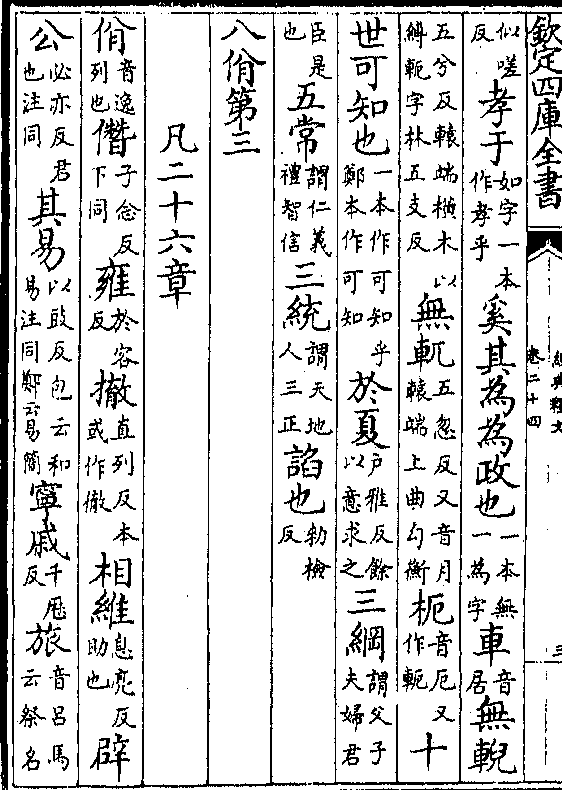 欽定四庫全書
經典釋文
卷二十四
三
似嗟反孝于如字一本作孝乎奚其為為政也一本無一為字車音居無輗
五兮反轅端橫木以縛軛字林五支反無軏五忽反又音月轅端上曲勾衡枙音厄又作軛十
世可知也一本作可知乎鄭本作可知於夏戶雅反餘以意求之三綱謂父子夫婦君
臣是也五常謂仁義禮智信三統謂天地人三正諂也勑檢反
八佾第三
凡二十六章
佾音逸列也僭子念反下同雍於容反撤直列反本或作徹相維息亮反助也辟
公必亦反君也注同其易以豉反包云和易注同鄭云易簡寧戚千歴反旅音呂馬云祭名